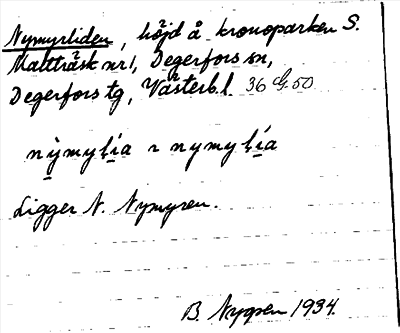 Nymyrliden, höjd å kronoparken S.
Maltträsk nr 1, Degerfors sn,
Degerfors tg, Västerb.l. 36 G. 50
nỳmyl̨i̱a ~ nymyl̨i̱a
Ligger N. Nymyren.
B. Nygren 1934.